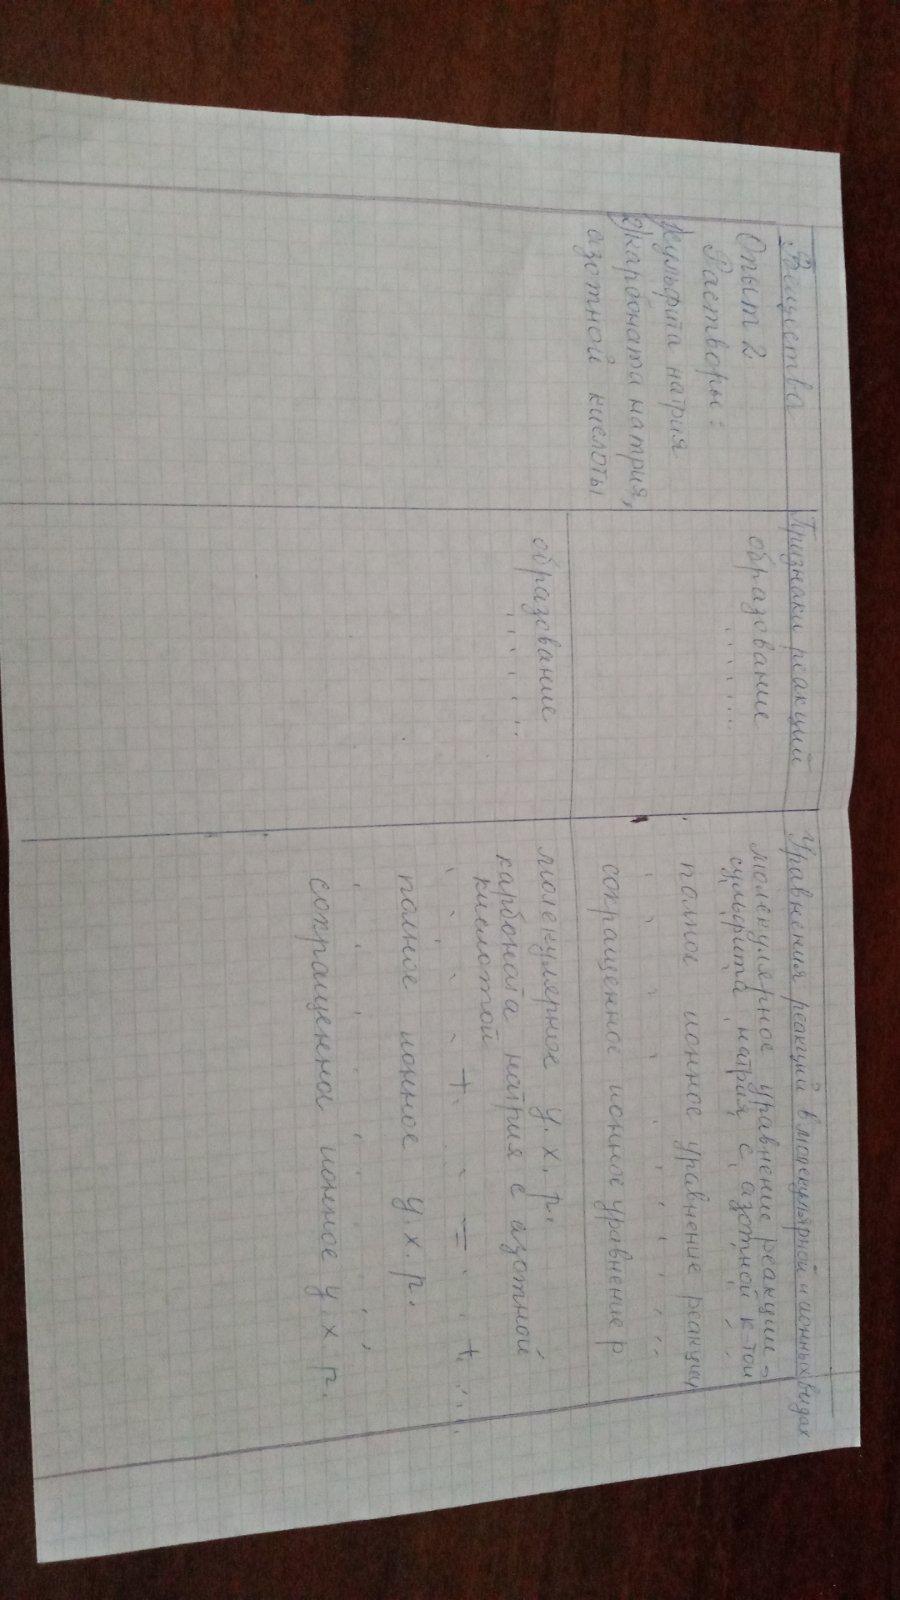 Вещества
Признаки реакций
Уравнения реакций в молекулярной и ионных видах
Опыт 2
Растворы:
1) сульфита натрия
2) карбоната натрия,
азотной кислоты
образование
.....
молекулярное уравнение реакции
сульфита натрия с азотной к-той
полное ионное уравнение реакции
сокращенное ионное уравнение р
образование
.....
молекулярное у.х.р.
карбоната натрия с азотной
кислотой
+ = +
полное ионное у.х.р.
сокращенна ионное у.х р.